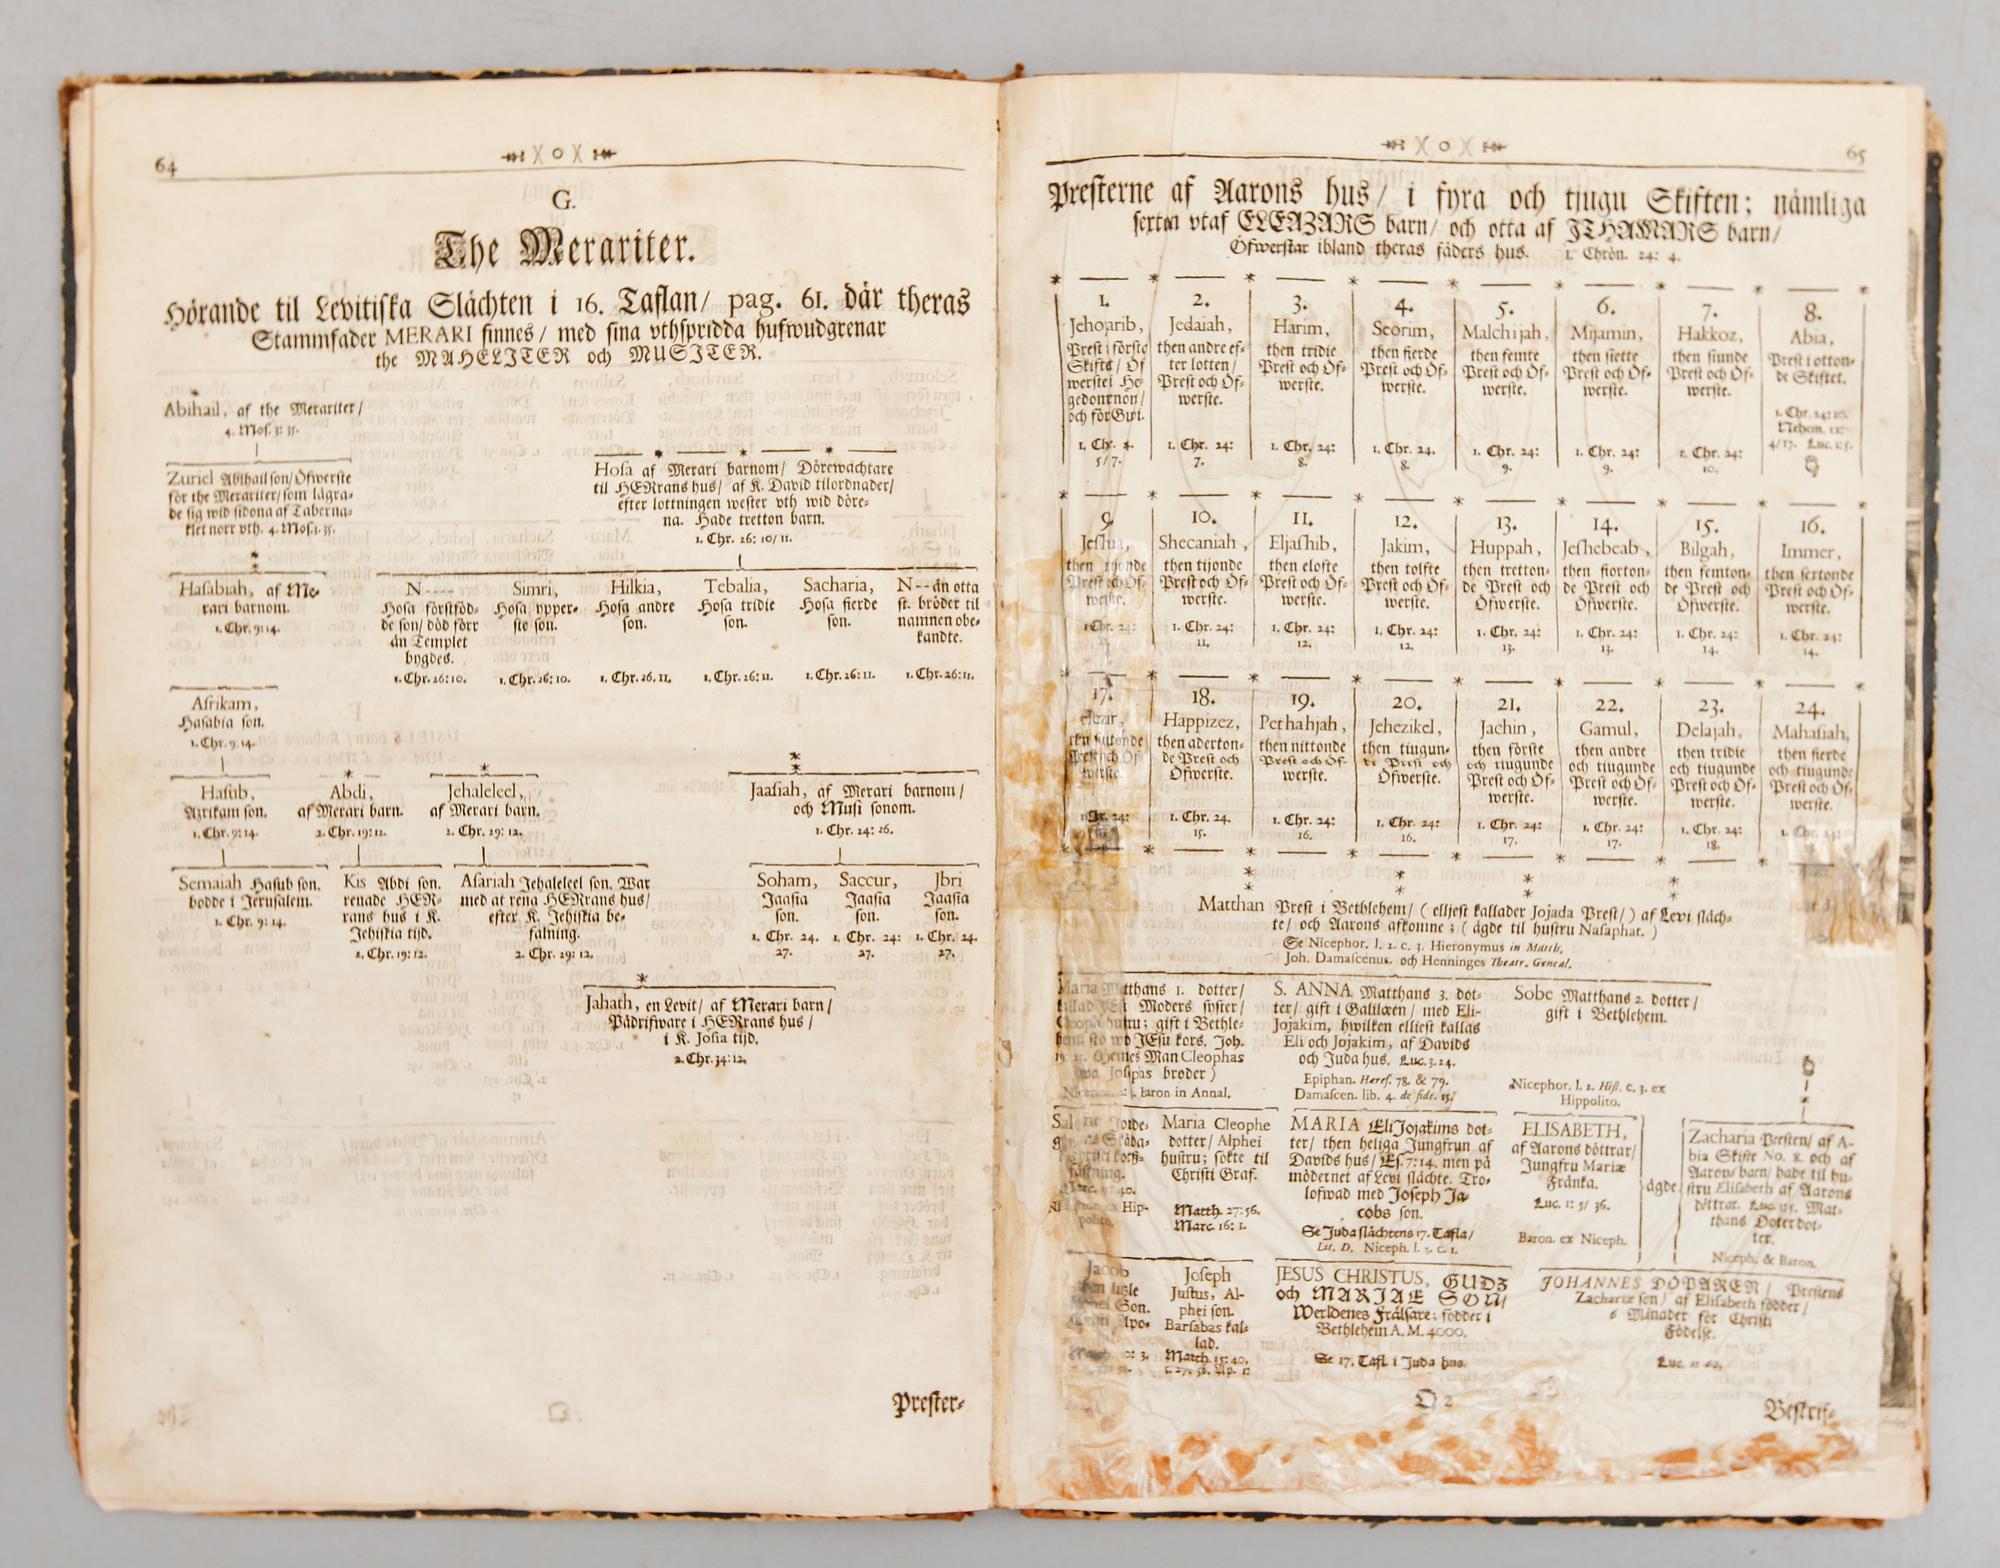 64
G.
The Merariter.
Hörande til Levitiska Slächten i 16. Taflan/ pag. 61. där theras
Stammfader MERARI finnes/ med sina vthspridda hufwudgrenar
the MAHELITER och MUSITER.
Abihail, af the Merariter/
4. Mos. 3: 35.
Zuriel Abihail son/ Öfwerste
för the Merariter/ som lägra-
de sig wid sidona af Taberna-
klet norr vth. 4. Mos. 3. 35.
Hosa af Merari barnom/ Dörewachtare
til HERrans hus/ af K. David tilordnader/
efter lottningen wester vth wid döre-
na. Hade tretton barn.
1. Chr. 26: 10/ 11.
Hasabiah, af Me-
rari barnom.
1. Chr. 9: 14.
N----
Hosa förstföd-
de son/ död förr
än Templet
bygdes.
1. Chr. 26: 10.
Simri,
Hosa ypper-
ste son.
1. Chr. 26: 10.
Hilkia,
Hosa andre
son.
1. Chr. 26. 11.
Tebalia,
Hosa tridie
son.
1. Chr. 26: 11.
Sacharia,
Hosa fierde
son.
1. Chr. 26: 11.
N-- än otta
st. bröder til
namnen obe-
kandte.
1. Chr. 26: 11.
Asrikam,
Hasabia son.
1. Chr. 9. 14.
Hasub,
Azrikam son.
1. Chr. 9: 14.
Abdi,
af Merari barn.
2. Chr. 19: 12.
Jehaleleel,
af Merari barn.
2. Chr. 29: 12.
Jaasiah, af Merari barnom/
och Musi sonom.
1. Chr. 24: 26.
Semaiah Hasub son.
bodde i Jerusalem.
1. Chr. 9: 14.
Kis Abdi son.
renade HER-
rans hus i K.
Jehiskia tijd.
2. Chr. 19: 12.
Asariah Jehaleleel son. War
med at rena HERrans hus/
efter K. Jehiskia be-
falning.
2. Chr. 29: 12.
Soham,
Jaasia
son.
1. Chr. 24.
27.
Saccur,
Jaasia
son.
1. Chr. 24:
27.
Jbri
Jaasia
son.
1. Chr. 24.
27.
Jahath, en Levit/ af Merari barn/
Pådrifware i HERrans hus/
i K. Josia tijd.
2. Chr. 34: 12.
Prester-
65
Presterne af Aarons hus/ i fyra och tiugu Skiften; nämliga
sexton vtaf ELEAZARS barn/ och otta af ITHAMARS barn/
Öfwerstar ibland theras fäders hus. 1. Chrön. 24: 4.
1.
Jehoarib,
Prest i förste
Skifts/ Öf
werstei He-
gedomen/
och för Gudi.
1. Chr. 4.
5/ 7.
2.
Jedaiah,
then andre ef-
ter lotten/
Prest och Öf-
werste.
1. Chr. 24:
7.
3.
Harim,
then tridie
Prest och Öf-
werste.
1. Chr. 24:
8.
4.
Seorim,
then fierde
Prest och Öf-
werste.
1. Chr. 24.
8.
5.
Malchijah,
then femte
Prest och Öf-
werste.
1. Chr. 24:
9.
6.
Mijamin,
then siette
Prest och Öf-
werste.
1. Chr. 24:
9.
7.
Hakkoz,
then siunde
Prest och Öf-
werste.
1. Chr. 24:
10.
8.
Abia,
Prest i otton-
de Skiftet.
1. Chr. 24: 10.
Nehem. 12:
4/ 17. Luc. 1: 5.
9.
Jeshua,
then nijonde
Prest och Öf-
werste.
1 Chr. 24:
10.
Shecaniah,
then tijonde
Prest och Öf-
werste.
1. Chr. 24:
11.
11.
Eljashib,
then elofte
Prest och Öf-
werste.
1. Chr. 24:
12.
12.
Jakim,
then tolfte
Prest och Öf-
werste.
1. Chr. 24:
12.
13.
Huppah,
then tretton-
de Prest och
Öfwerste.
1. Chr. 24:
13.
14.
Jeshebeab,
then fiorton-
de Prest och
Öfwerste.
1. Chr. 24:
13.
15.
Bilgah,
then femton-
de Prest och
Öfwerste.
1. Chr. 24:
14.
16.
Immer,
then sextonde
Prest och Öf-
werste.
1. Chr. 24:
14.
17.
werste.
18.
Happizez,
then aderton-
de Prest och
Öfwerste.
1. Chr. 24.
15.
19.
Pethahjah,
then nittonde
Prest och Öf-
werste.
1. Chr. 24:
16.
20.
Jehezikel,
then tiugun-
de Prest och
Öfwerste.
1. Chr. 24:
16.
21.
Jachin,
then förste
och tiugunde
Prest och Öf-
werste.
1. Chr. 24:
17.
22.
Gamul,
then andre
och tiugunde
Prest och Öf-
werste.
1. Chr. 24:
17.
23.
Delajah,
then tridie
och tiugunde
Prest och Öf-
werste.
1. Chr. 24:
18.
24.
Mahasiah,
then fierde
och tiugunde
Prest och Öf-
werste.
1. Chr. 24:
Matthan Prest i Bethlehem/ (elliest kallader Jojada Prest/) af Levi släch-
te/ och Aarons afkomne; (ägde til hustru Nasaphat.)
Se Nicephor. l. 2. c. 3. Hieronymus in Matth.
Joh. Damascenus. och Henninges Theatr. Geneal.
Maria Matthans 1. dotter/
Moders syster/
hustru; gift i Bethle-
JEsu kors. Joh.
Man Cleophas
Josephs broder)
Baron in Annal.
S. ANNA Matthans 3. dot-
ter/ gift i Galilæen/ med Eli-
Jojakim, hwilken elliest kallas
Eli och Jojakim, af Davids
och Juda hus. Luc. 3. 24.
Epiphan. Hæref. 78. & 79.
Damascen. lib. 4. de fide. 15.
Sobe Matthans 2. dotter/
gift i Bethlehem.
Nicephor. l. 2. Hist. c. 3. ex
Hippolito.
Maria Cleophe
dotter/ Alphei
hustru; sökte til
Christi Graf.
Matth. 27: 56.
Marc. 16: 1.
MARIA EliJojakims dot-
ter/ then heliga Jungfrun af
Davids hus/ Es. 7: 14. men på
mödernet af Levi slächte. Tro-
lofwad med Joseph Ja-
cobs son.
Se Juda slächtens 17. Tafla/
Lit. D. Niceph. l. 2. c. 1.
ELISABETH,
af Aarons döttrar/
Jungfru Mariæ
Fränka.
Luc. 1: 5/ 36.
Baron. ex Niceph.
ägde
Zacharia Presten/ af A-
bia Skifte No. 8. och af
Aarons barn/ hade til hu-
stru Elisabeth af Aarons
döttrar. Luc. 1: 5. Mat-
thans Doterdot-
ter.
Niceph. & Baron.
Jacob
Son.
Joseph
Justus, Al-
phei son.
Barsabas kal-
lad.
Matth. 15: 40.
JESUS CHRISTUS, GUDS
och MARIAE SON/
Werldenes Frälsare: födder i
Bethlehem A. M. 4000.
Se 17. Tafl. i Juda hus.
JOHANNES DÖPAREN/ Prestens
Zachariæ son/ af Elisabeth födder/
6 Månader för Christi
Födelse.
Q 2
Beskrif-